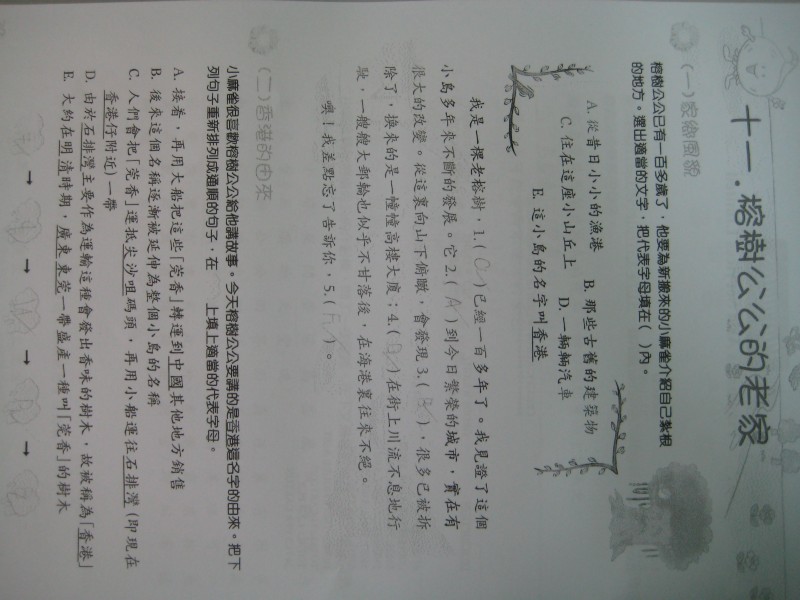 十一．榕樹公公的老家
(一)
榕樹公公已有一百多歲了，他要為新搬來的小麻雀介紹自己紮根
的地方。選出適當的文字，把代表字母填在( )內。
A. 從昔日小小的漁港 B. 那些古舊的建築物
C. 住在這座小山丘上 D. 一輛輛汽車
E. 這小島的名字叫香港
我是一棵老榕樹，1.( C )已經一百多年了。我見證了這個
小島多年來不斷的發展。它2.( A )到今日繁榮的城市，實在有
很大的改變。從這裏向山下俯瞰，會發現3.( B )，很多已被拆
除了，換來的是一幢幢高樓大廈；4.( D )在街上川流不息地行
駛，一艘艘大郵輪也似乎不甘落後，在海港裏往來不絕。
噢！我差點忘了告訴你，5.( E )。
(二)香港的由來
小麻雀很喜歡榕樹公公給他講故事。今天榕樹公公要講的是香港這名字的由來。把下
列句子重新排列成通順的句子，在 上填上適當的代表字母。
A. 接着，再用大船把這些「莞香」轉運到中國其他地方銷售
B. 後來這個名稱逐漸被延伸為整個小島的名稱
C. 人們會把「莞香」運抵尖沙咀碼頭，再用小船運往石排灣(即現在
香港仔附近)一帶
D. 由於石排灣主要作為運輸這種會發出香味的樹木，故被稱為「香港」
E. 大約在明清時期，廣東東莞一帶盛產一種叫「莞香」的樹木
→ → → →